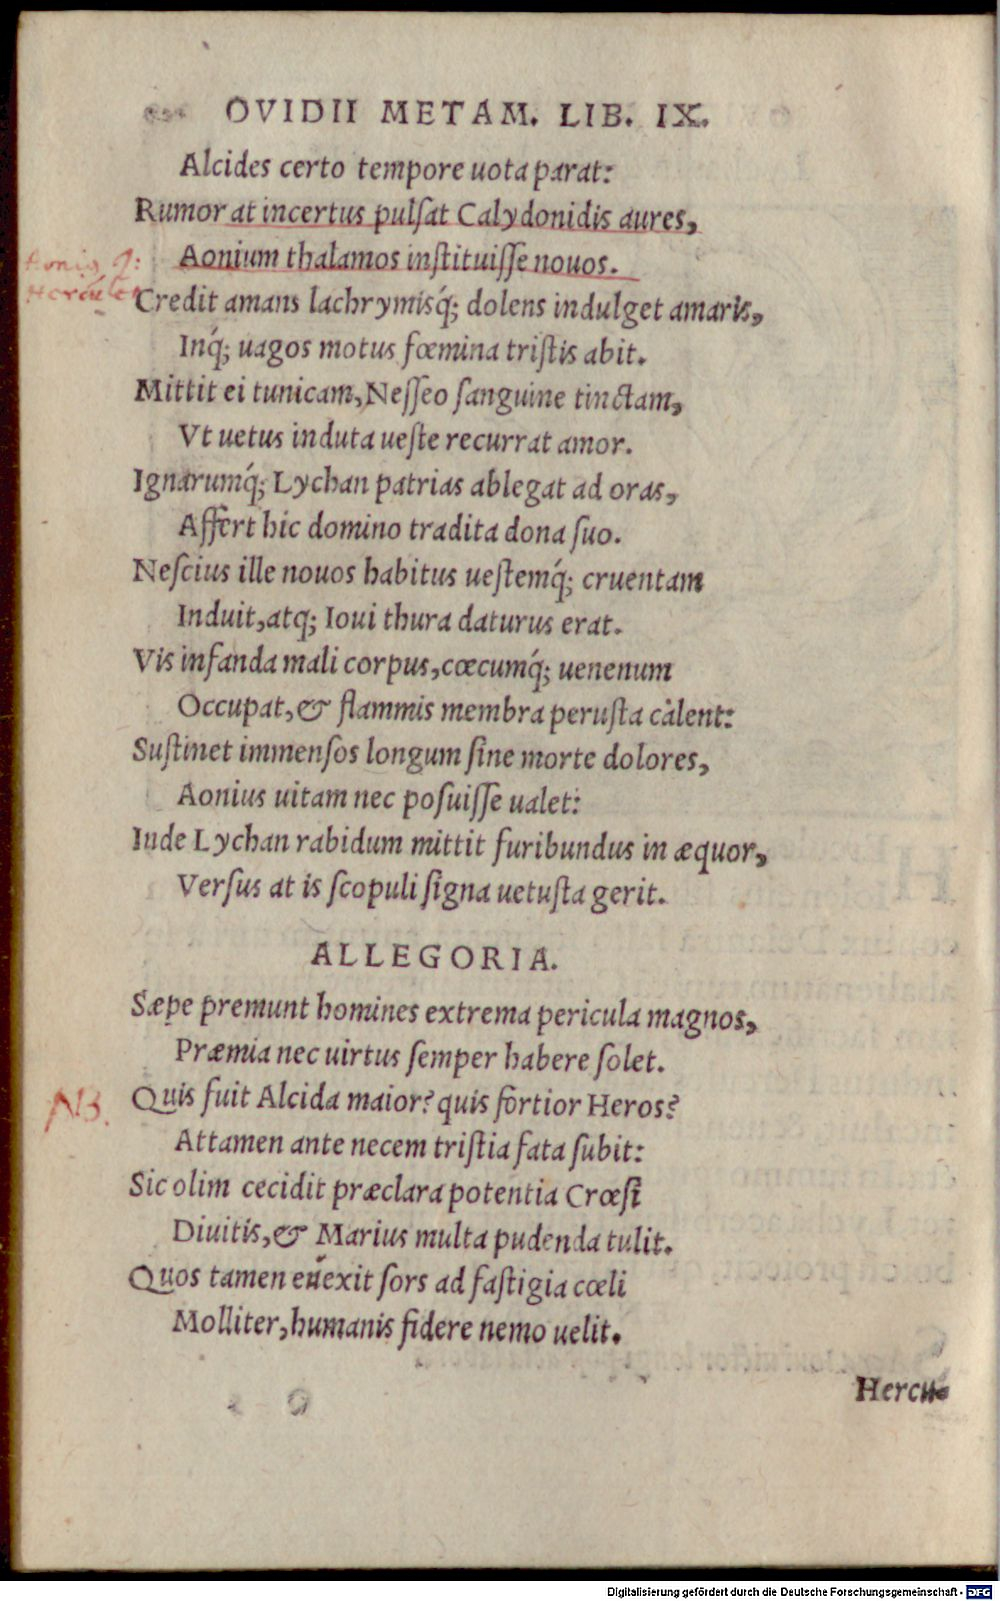 OVIDII METAM. LIB. IX.
Alcides certo tempore uota parat:
Rumor at incertus pulſat Calydonidis aures,
Aonium thalamos inſtituiſſe nouos.
Credit amans lachrymisq́; dolens indulget amaris,
Inq́; uagos motus fœmina triſtis abit.
Mittit ei tunicam, Neſſeo ſanguine tinctam,
Vt uetus induta ueſte recurrat amor.
Ignarumq́; Lychan patrias ablegat ad oras,
Affert hic domino tradita dona ſuo.
Neſcius ille nouos habitus ueſtemq́; cruentam
Induit, atq; Ioui thura daturus erat.
Vis infanda mali corpus, cœcumq́; uenenum
Occupat, & flammis membra peruſta càlent:
Suſtinet immenſos longum ſine morte dolores,
Aonius uitam nec poſuiſſe ualet:
Inde Lychan rabidum mittit furibundus in æquor,
Verſus at is ſcopuli ſigna uetuſta gerit.
ALLEGORIA.
Sæpe premunt homines extrema pericula magnos,
Præmia nec uirtus ſemper habere ſolet.
NB.
Quis fuit Alcida maior? quis fortior Heros?
Attamen ante necem triſtia fata ſubit:
Sic olim cecidit præclara potentia Crœſi
Diuitis, & Marius multa pudenda tulit.
Quos tamen euexit ſors ad faſtigia cœli
Molliter, humanis fidere nemo uelit.
Hercu-
Digitalisierung gefördert durch die Deutsche Forschungsgemeinschaft - DFG